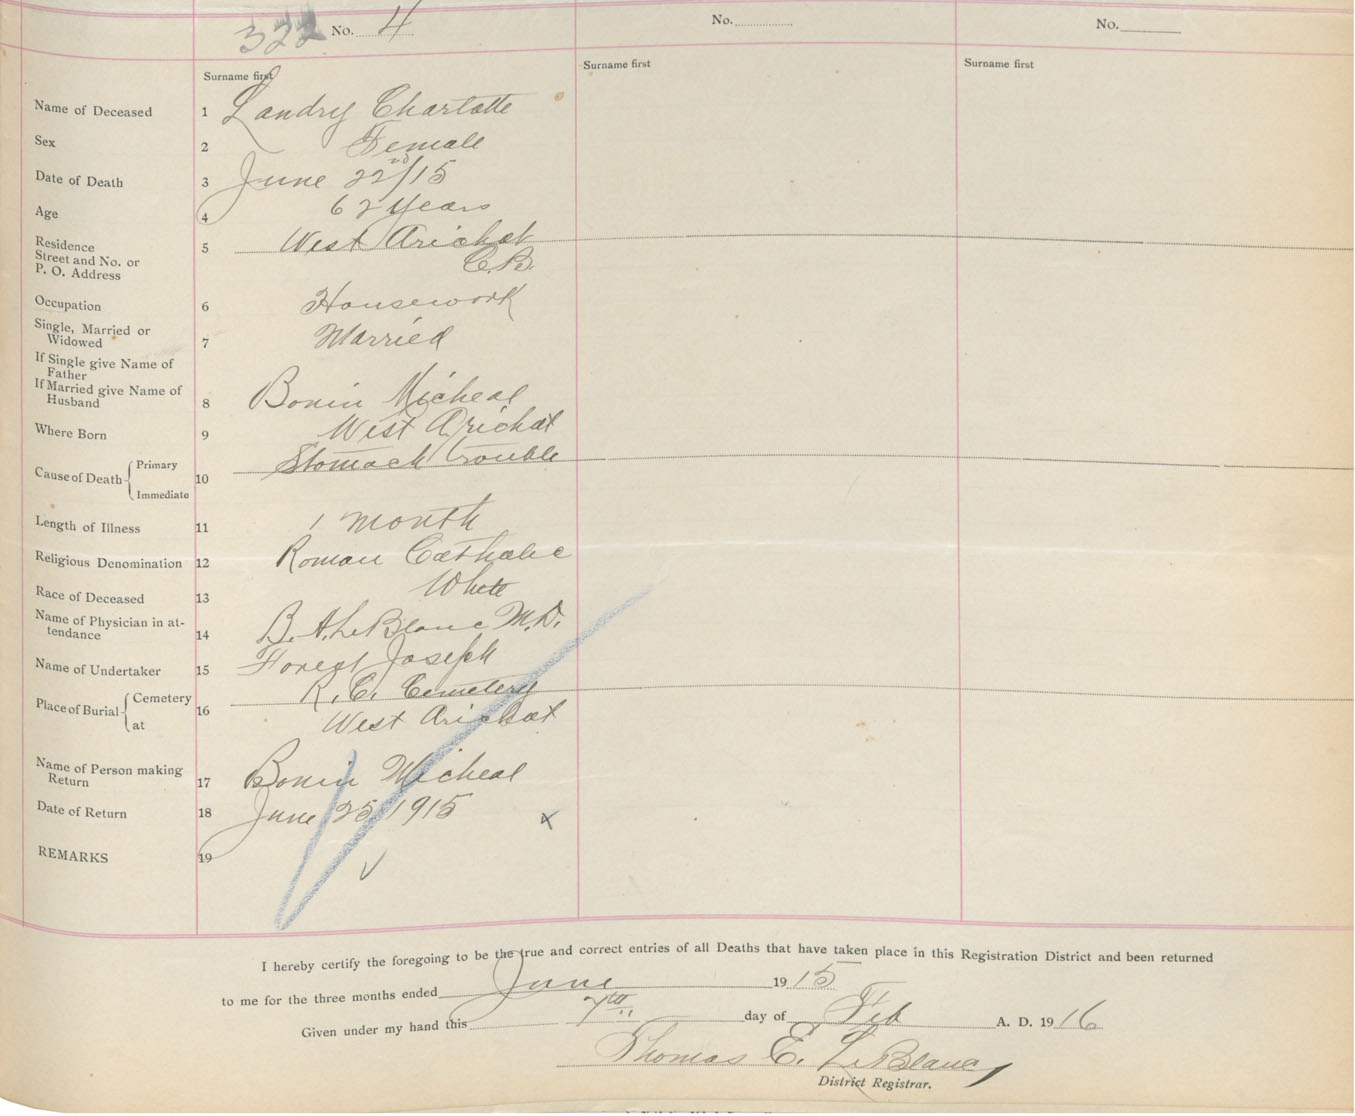 322 No. 4
No.
No.
Surname first
Surname first
Surname first
Name of Deceased 1 Landry Charlotte
Sex 2 Female
Date of Death 3 June 22nd/15
Age 4 62 years
Residence
Street and No. or
P. O. Address
5 West Arichat
C.B.
Occupation 6 Housework
Single, Married or
Widowed
7 Married
If Single give Name of
Father
If Married give Name of
Husband
8 Bonin Micheal
Where Born 9 West Arichat
Cause of Death Primary
Immediate
10 Stomach trouble
Length of Illness 11 1 month
Religious Denomination 12 Roman Catholic
Race of Deceased 13 White
Name of Physician in at-
tendance
14 B. A. LeBlanc M.D.
Name of Undertaker 15 Forest Joseph
Place of Burial Cemetery
at
16 R. C. Cemetery
West Arichat
Name of Person making
Return
17 Bonin Micheal
Date of Return 18 June 25 1915
REMARKS 19
I hereby certify the foregoing to be the true and correct entries of all Deaths that have taken place in this Registration District and been returned
to me for the three months ended June 1915
Given under my hand this 7th day of Feb A. D. 1916
Thomas E. LeBlanc
District Registrar.